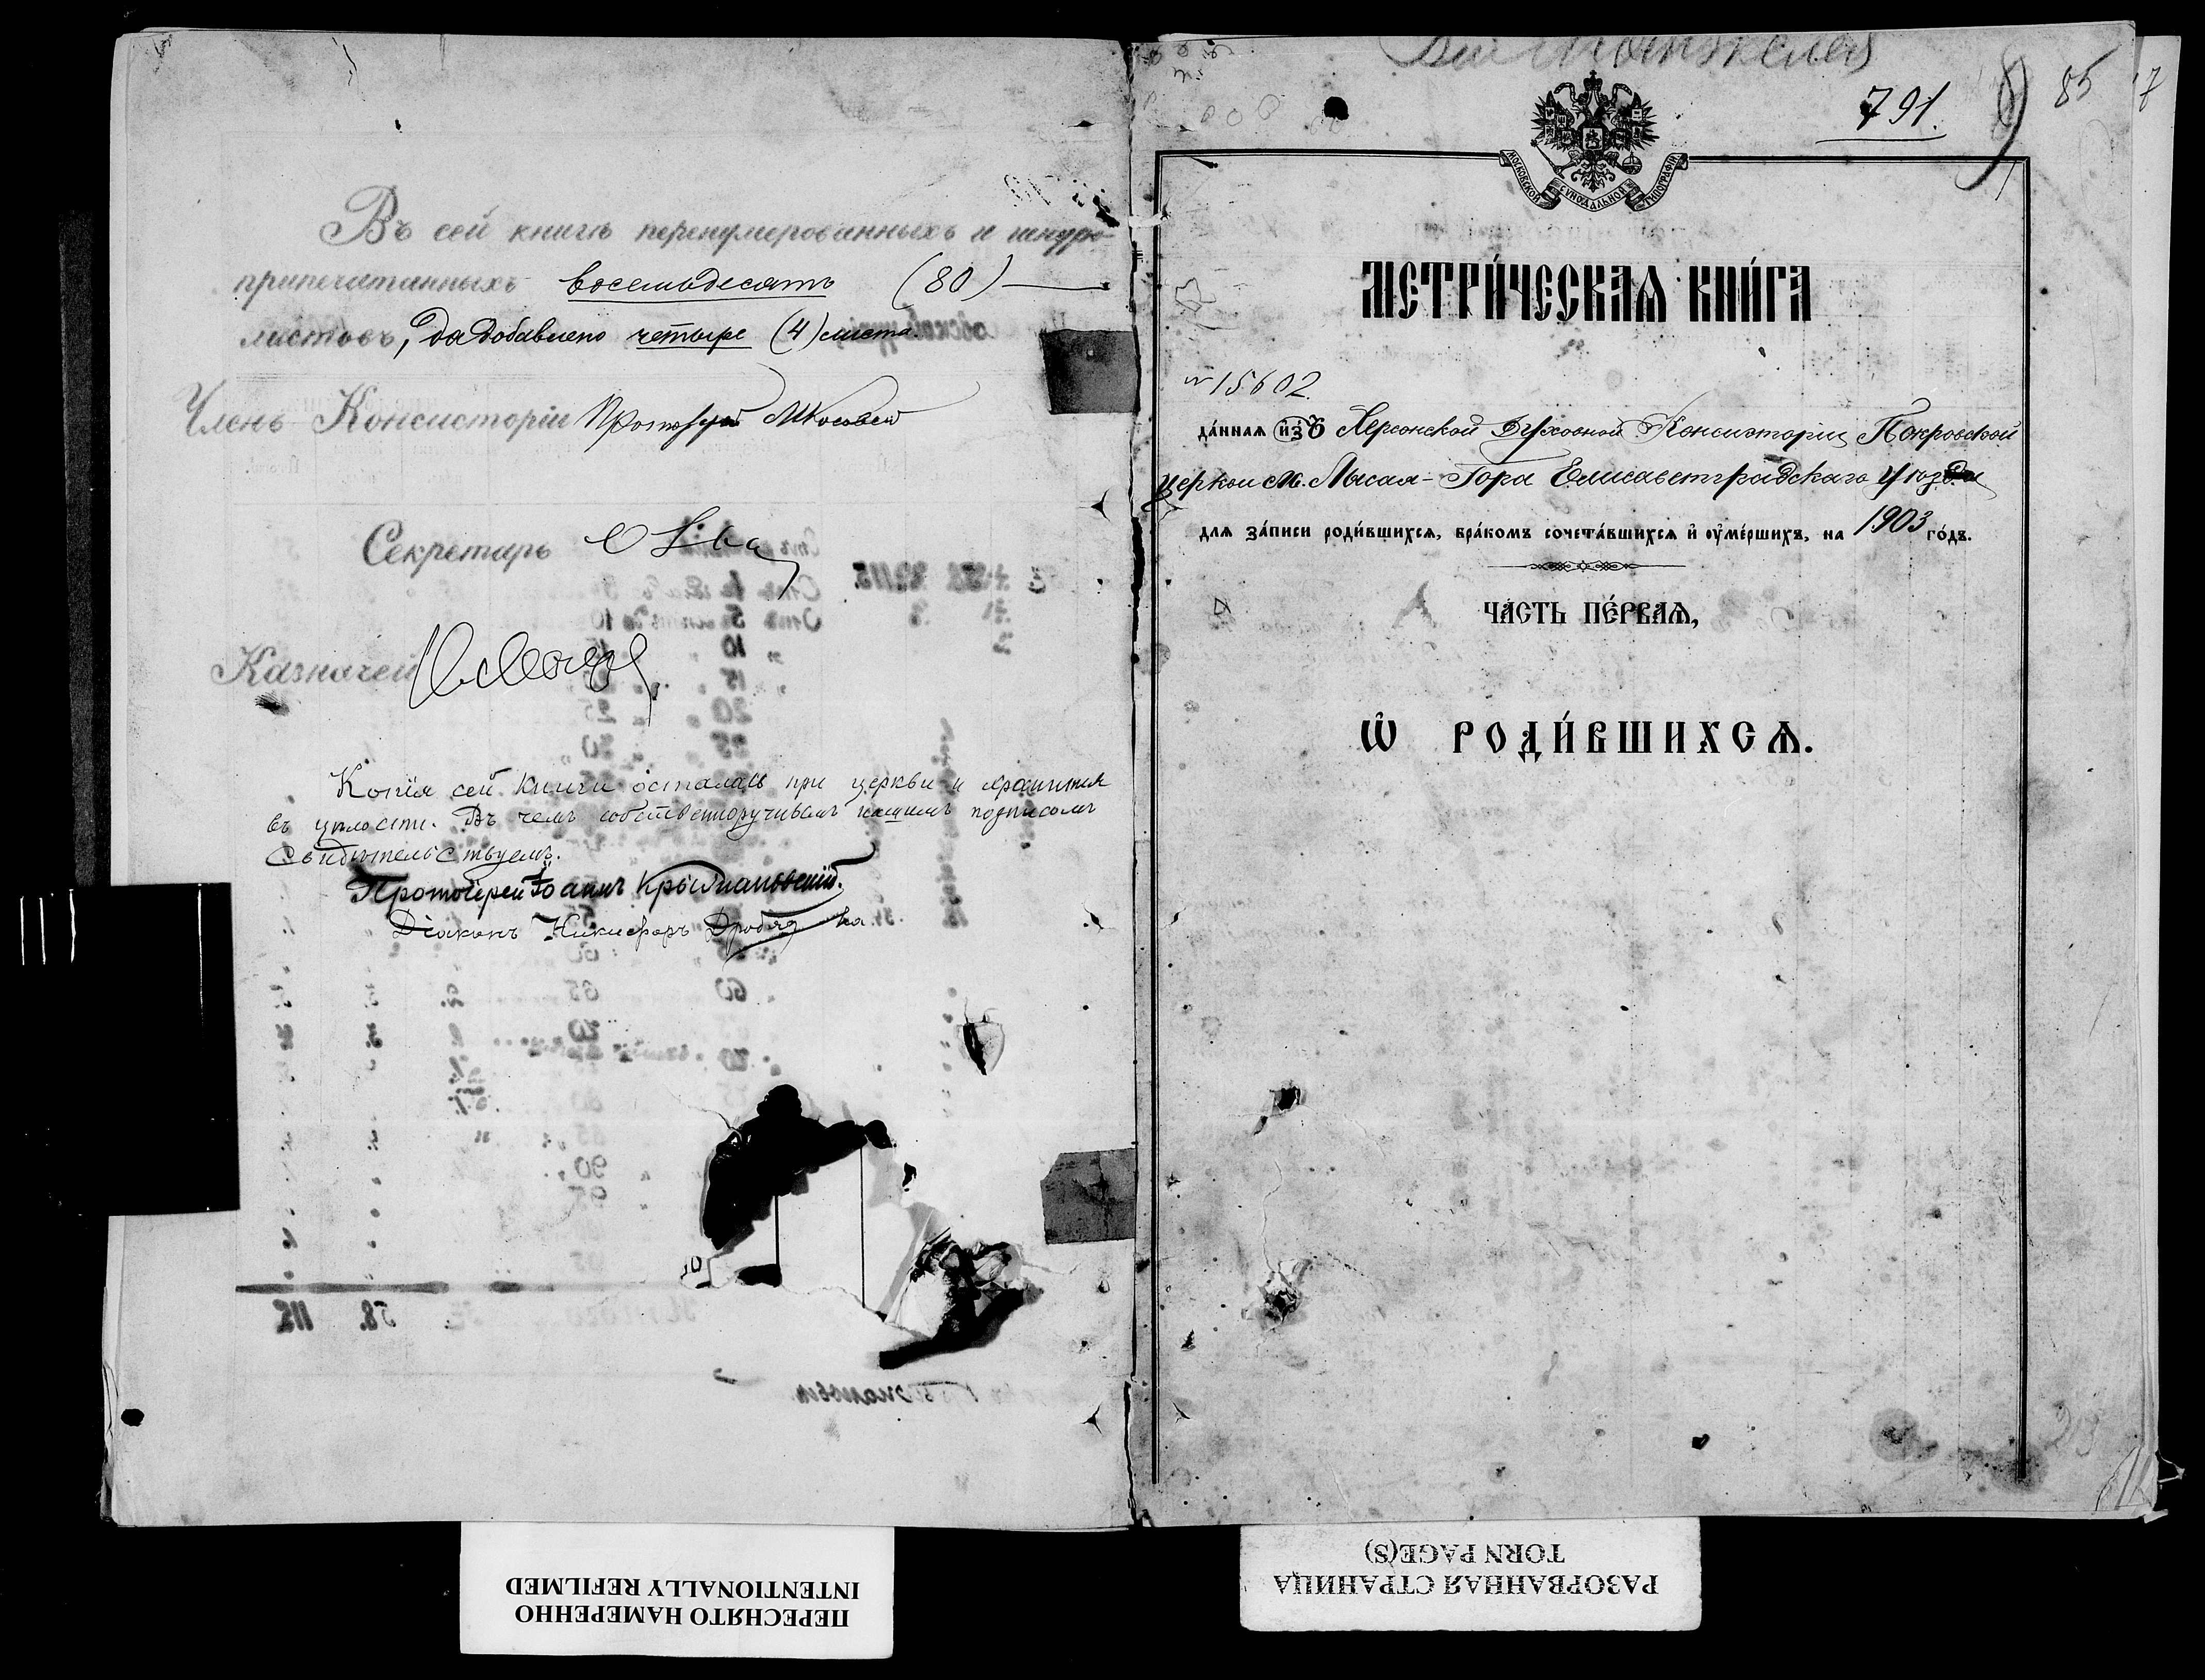 Въ сей книгѣ перенумерованныхъ и шнуро-
припечатанныхъ восемьдесятъ (80)
листовъ, да добавлено четыре (4) листа.
Членъ Консисторіи Протоіерей
Секретарь
Казначей
Копія сей книги осталась при церкви и хранится
въ цѣлости. Въ чемъ собственноручнымъ нашимъ подписомъ
Свидѣтельствуемъ.
Протоіерей Іоаннъ Крыжановскій.
Діаконъ Никифоръ
ПЕРЕСНЯТО НАМЕРЕННО
INTENTIONALLY REFILMED
791.
85
МОСКОВСКОЙ СУНОДАЛЬНОЙ ТИПОГРАФІИ
МЕТРИ́ЧЕСКАѦ КНИ́ГА
№ 15602.
да́нная и҆зъ Херсонской Духовной Консисторіи Покровской
церкви м. Лысая-Гора Елисаветградскаго уѣзда
для за́писи роди́вшихся, бра́комъ сочета́вшихся и҆ оу҆ме́ршихъ, на 1903 го́дъ.
ЧА́СТЬ ПЕ́РВАѦ,
Ѡ҆ РОДИ́ВШИХСѦ.
РАЗОРВАННАЯ СТРАНИЦА
TORN PAGE(S)